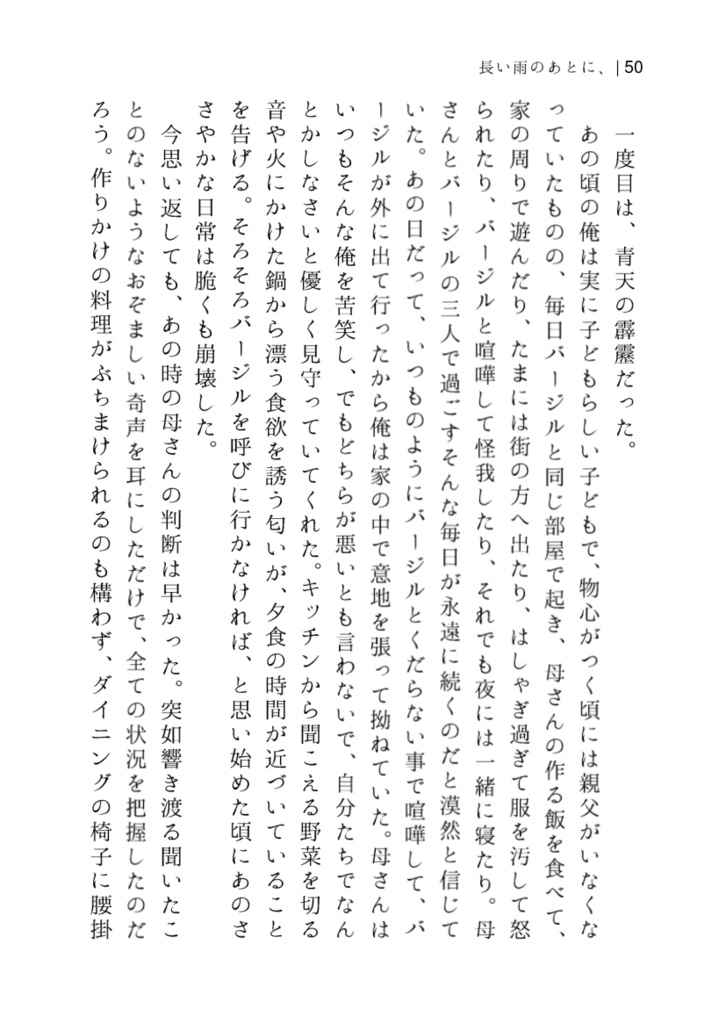 長い雨のあとに、 | 50
一度目は、青天の霹靂だった。
あの頃の俺は実に子どもらしい子どもで、物心がつく頃には親父がいなくな
っていたものの、毎日バージルと同じ部屋で起き、母さんの作る飯を食べて、
家の周りで遊んだり、たまには街の方へ出たり、はしゃぎ過ぎて服を汚して怒
られたり、バージルと喧嘩して怪我したり、それでも夜には一緒に寝たり。母
さんとバージルの三人で過ごすそんな毎日が永遠に続くのだと漠然と信じて
いた。あの日だって、いつものようにバージルとくだらない事で喧嘩して、バ
ージルが外に出て行ったから俺は家の中で意地を張って拗ねていた。母さんは
いつもそんな俺を苦笑し、でもどちらが悪いとも言わないで、自分たちでなん
とかしなさいと優しく見守っていてくれた。キッチンから聞こえる野菜を切る
音や火にかけた鍋から漂う食欲を誘う匂いが、夕食の時間が近づいていること
を告げる。そろそろバージルを呼びに行かなければ、と思い始めた頃にあのさ
さやかな日常は脆くも崩壊した。
今思い返しても、あの時の母さんの判断は早かった。突如響き渡る聞いたこ
とのないようなおぞましい奇声を耳にしただけで、全ての状況を把握したのだ
ろう。作りかけの料理がぶちまけられるのも構わず、ダイニングの椅子に腰掛